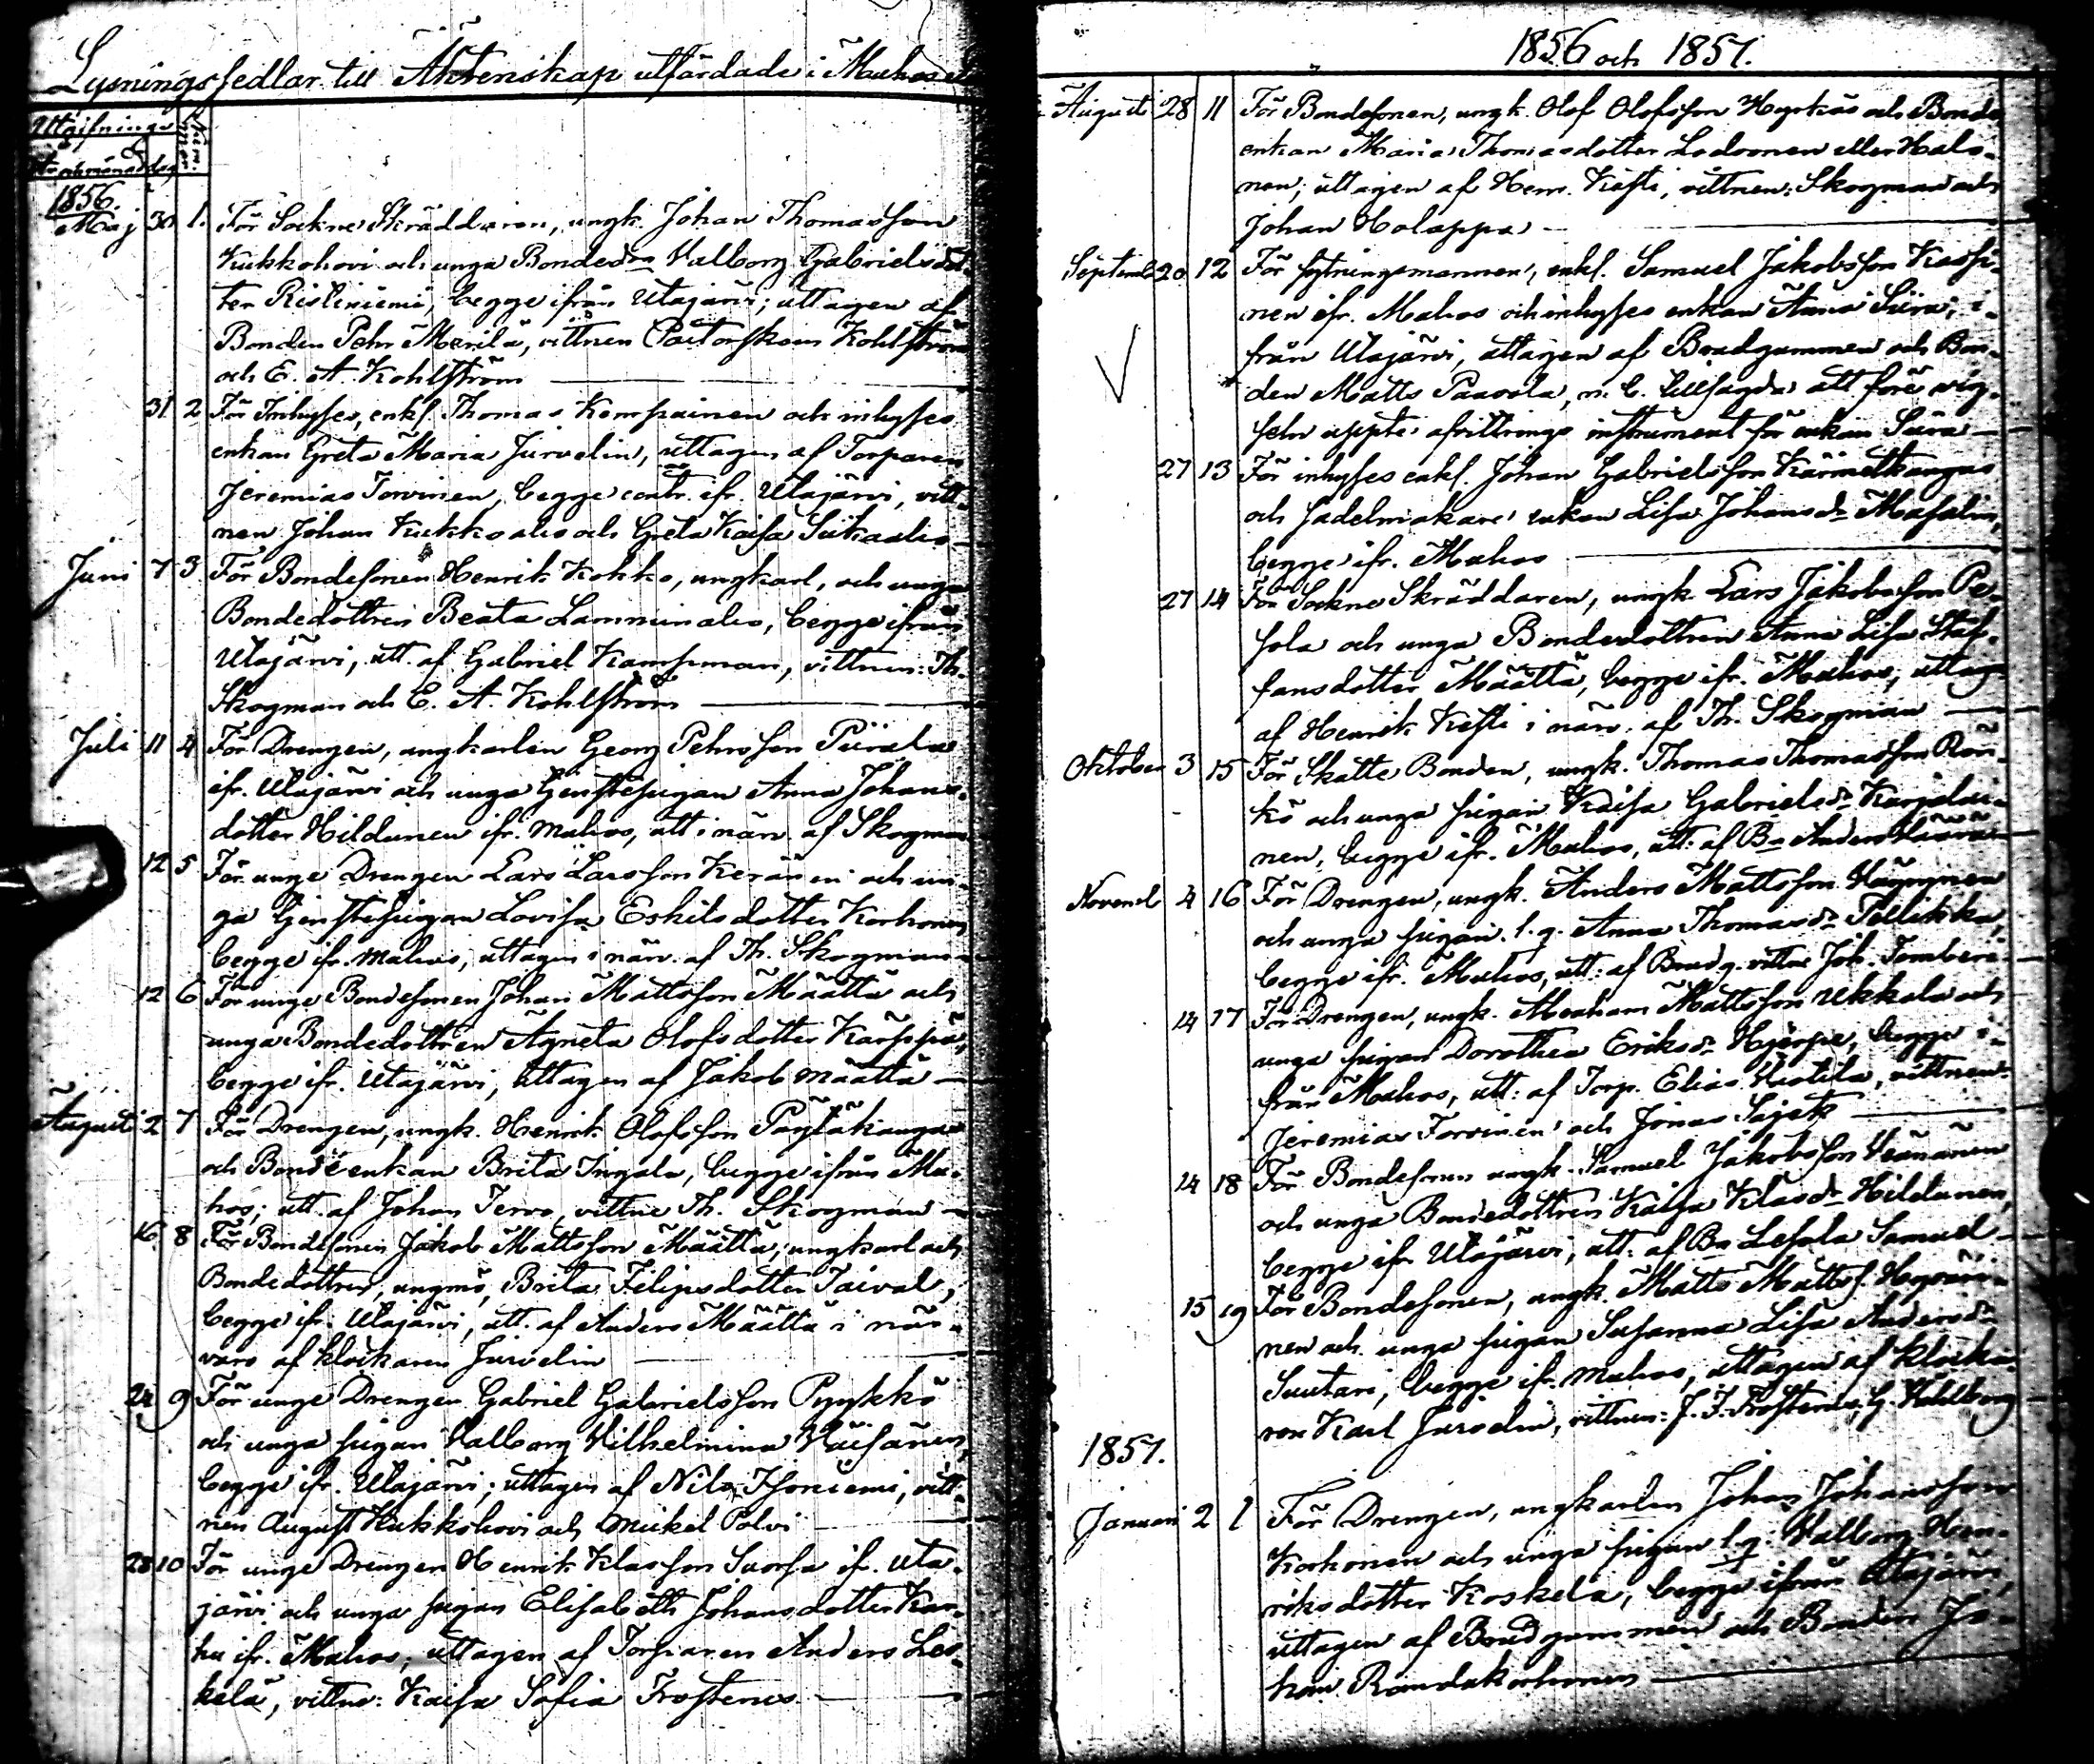 Lysningssedlar till Äktenskap utfärdade i Muhos
Utgifnings
År och månad dag
1856.
Maj 30 1. För Sockne Skräddaren, ungk. Johan Thomasson
Kukkohovi och unga Bondedrn Valborg Gabrielsdot-
ter Risliniemi, begge ifrån Utajärvi; uttagen af
Bonden Pehr Merilä, vittnen Pastorskan Kohlström
och E. A. Kohlström
31 2 För Inhyses, enkl. Thomas Kemppainen och inhyses
enkan Greta Maria Jurvelin, uttagen af Torparen
Jeremias Torvinen, begge contr. ifr. Utajärvi, vitt-
nen Johan Kukkoaho och Greta Kaisa Siikaaho
Juni 7 3 För Bondesonen Henrik Kokko, ungkarl, och unga
Bondedottren Beata Lamminaho, begge ifrån
Utajärvi, utt. af Gabriel Kampman, vittnen: Th.
Skogman och E. A. Kohlström
Juli 11 4 För Drengen, ungkarlen Georg Pehrsson Piirala
ifr. Utajärvi och unga Tjenstepigan Anna Johans-
dotter Hildunen ifr. Muhos, utt i närv. af Skogman
12 5 För unge Drengen Lars Larsson Keränen och un-
ga Tjenstepigan Lovisa Eskilsdotter Korhonen
begge ifr. Muhos, uttagen i närv. af Th. Skogman
12 6 För unge Bondesonen Johan Mattsson Määttä och
unga Bondedottren Agneta Olofsdotter Karppa,
begge ifr. Utajärvi, Uttagen af Jakob Määttä
Augusti 2 7 För Drengen, ungk. Henrik Olofsson Pöytäkangas
och Bonde enkan Brita Ingala, begge ifrån Mu-
hos; utt. af Johan Tervo, vittne Th. Skogman
16 8 För Bondesonen Jakob Mattsson Määttä, ungkarl och
Bondedottren, ungmö, Brita Filipsdotter Taival,
begge ifr. Utajärvi, utt. af Anders Määttä i när-
varo af klockaren Jurvelin
24 9 För unge Drengen Gabriel Gabrielsson Pyykkö
och unga pigan Valborg Vilhelmina Väisänen,
begge ifr. Utajärvi; uttagen af Nils Isoniemi, vitt-
nen August Kukkohovi och Mickel Polvi
28 10 För unge Drengen Henrik Klasson Suorsa if. Uta-
järvi och unga pigan Elisabeth Johansdotter Kar-
hu ifr. Muhos; uttagen af Torparen Anders Les-
kelä, vittne: Kaisa Sofia Frosterus
1856 och 1857.
Augusti 28 11 För Bondesonen, ungk. Olof Olofsson Hyrkäs och Bonde
enkan Maria Thomasdotter Lodvonen eller Halo-
nen; uttagen af Hem. Kesti, vittnen: Skogman och
Johan Holappa
Septemb 20 12 För sytningsmannen, enkl. Samuel Jakobsson Kossi-
nen ifr. Muhos och inhyses enkan Anna Siira, i-
från Utajärvi, uttagen af Brudgummen och Bon-
den Matts Paavola, n. b. tillsagda att före vig-
seln uppte afvittrings instrument för enkan Siira
27 13 För inhyses enkl. Johan Gabrielsson Kärmeskangas
och Sadelmakare enkan Lisa Johansdr Masalin,
begge ifr. Muhos
27 14 För Sockne Skräddaren, ungk. Lars Jakobsson Pe-
sola och unga Bondedottren Anna Lisa Staf-
fansdotter Määttä, begge ifr. Muhos, uttag
af Henrik Kesti i närv. af Th. Skogman
Oktober 3 15 För Skatte Bonden, ungk. Thomas Thomasson Rön-
kö och unga pigan Kaisa Gabrielsdr Karjalai-
nen, begge ifr. Muhos, utt. af Bn Anders
Novemb 4 16 För Drengen, ungk. Anders Mattsson Häyrynen
och unga pigan l. q. Anna Thomasdr Tellikka,
begge ifr. Muhos, utt: af Brudg. vittne Joh. Tomberi
14 17 För Drengen, ungk. Abraham Mattsson Ukkola och
unga pigan Dorothea Eriksdr Hjerpe, begge i-
från Muhos, utt: af Torp. Elias Vuotila, vittnen
Jeremias Torvinen och Jonas Sajet
14 18 För Bondesonen ungk. Samuel Jakobsson Väänänen
och unga Bondedottren Kaisa Klasdr Hildunen,
begge ifr Utajärvi, utt: af Bn Lesola Samuel
15 19 För Bondesonen, ungk. Matts Mattss. Hyväri-
nen och unga pigan Susanna Lisa Andersdr
Suutari, begge ifr. Muhos, uttagen af klocka-
ren Karl Jurvelin, vittnen: J. F. Frosterus, G. Wahlberg
1857.
Januari 2 1 För Drengen, ungkarlen Johan Johansson
Korhonen och unga pigan l. q. Valborg Hen-
riksdotter Koskela, begge ifrån Utajärvi,
uttagen af Brudgummen och Bonden Jo-
han Randakorhonen